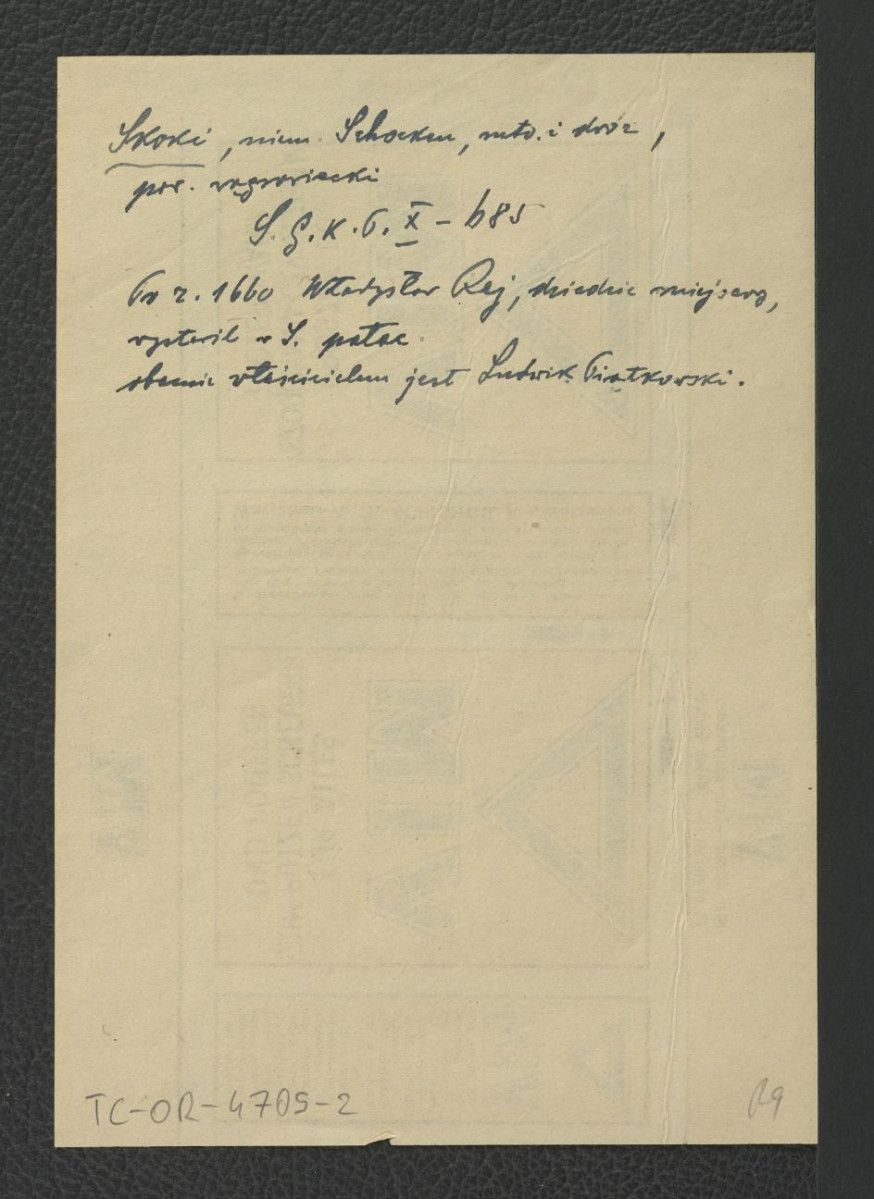 Skoki, niem. Schocken, mto. i dwór,
pow. wągrowiecki
S. G. K. P. X - 685
Po r. 1660 Władysław Rej, dziedzic miejscowy,
wystawił w S. pałac.
obecnie właścicielem jest Ludwik Piątkowski.
TC-OR-4705-2